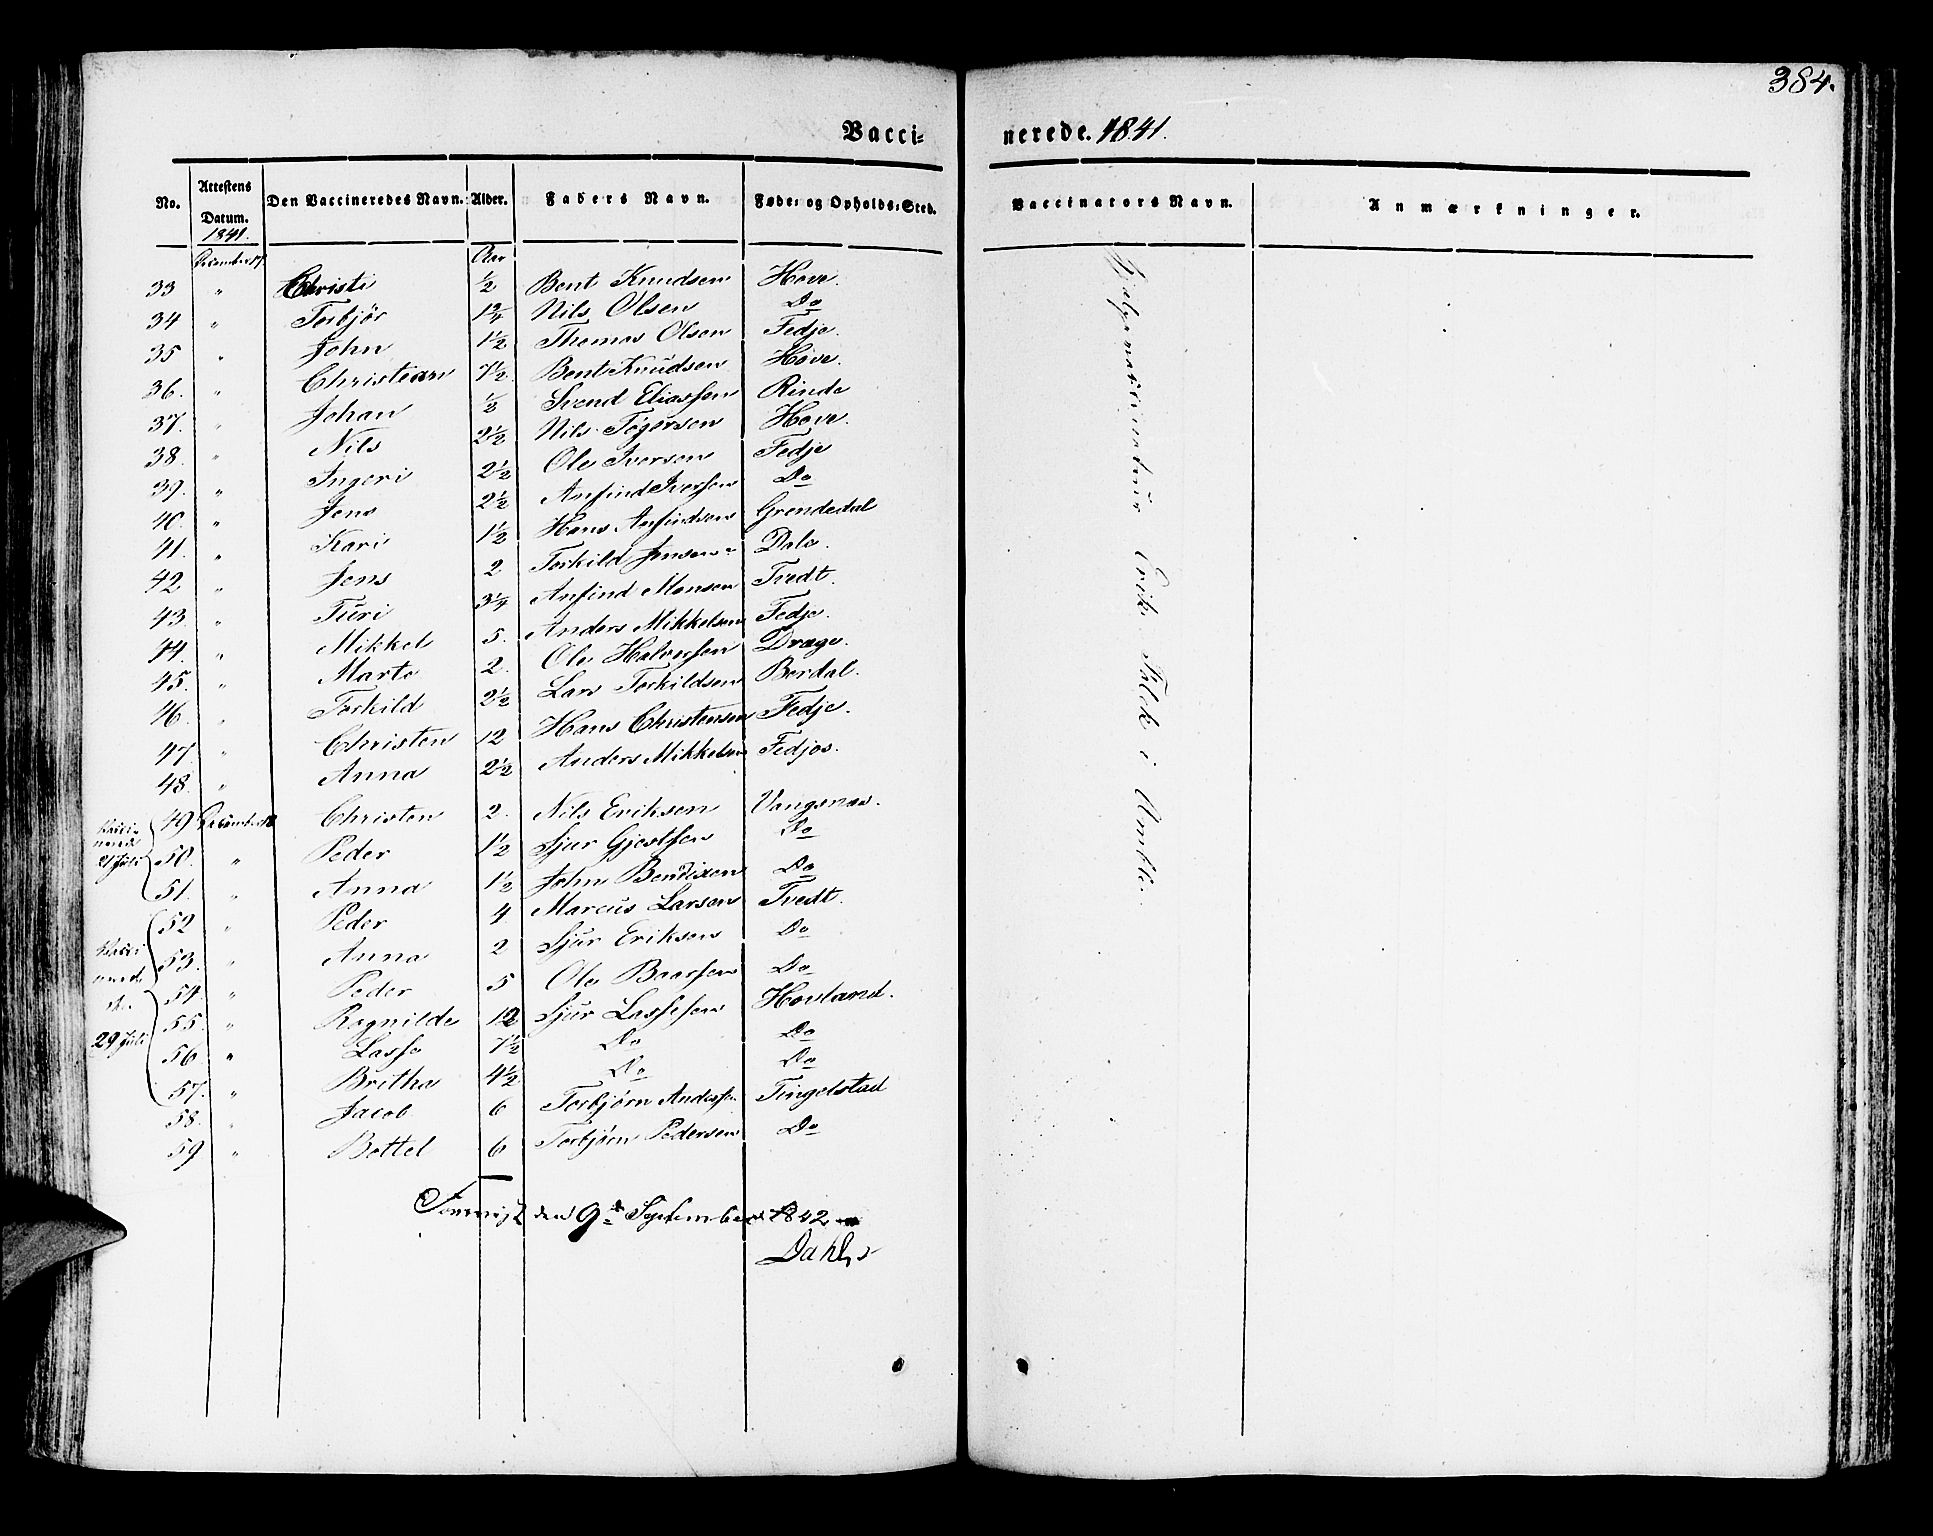 384.
Vacci- nerede. 1841.
No. Attestens Datum. Den Vaccineredes Navn. Alder. Faders Navn. Føde- og Opholds-Sted. Vaccinators Navn. Anmærkninger.
1841.
December 17. Aar
33 " Christi ½ Bent Knudsen Hove.
34 " Torbjør 1¾ Nils Olsen Do
35 " John 1½ Thomas Olsen Fedje.
36. " Christian 7½ Bent Knudsen Hove.
37. " Johan ½ Svend Eliassen Rinde
38. " Nils 2½ Nils Togersen Hove.
39. " Ingeri 2½ Ole Iversen Fedje
40. " Jens 2½ Anfind Iversen Do
41. " Kari 1½ Hans Anfindsen Grendedal
42 " Jens 2. Torkild Jensen Dale.
43. " Turi 3¼ Anfind Monsen Tvedt.
44. " Mikkel 5. Anders Mikkelsen Fedje.
45. " Marte 2. Ole Halvorsen Drage.
46. " Torkild 2½ Lars Torkildsen Berdal.
47. " Christen 12 Hans Christensen Fedje.
48. " Anna 2½ Anders Mikkelsen Fedjos.
49 December 18 Christen 2. Nils Eriksen Vangsnæs.
50. " Peder 1½ Sjur Gjestsen Do
51. " Anna 1½ John Bendixen Do
52 " Peder 4 Marcus Larsen Tvedt.
53. " Anna 2 Sjur Eriksen Do
54. " Peder 5 Ole Baarsen Do
55. " Ragnilde 12 Sjur Lassesen Hovland.
56 " Lasse 7½ Do Do
57. " Britha 4½ Do Do
58. " Jacob 6 Torbjørn Anderssen Tingelstad
59 " Bottel 6 Torbjørn Pedersen Do
Vacci-
nerede
21 Juli
Vacci
nerede
29 Juli
Hjelpevaccinateur Erik Falck i Amble.
den 9de September 1842
Dahl